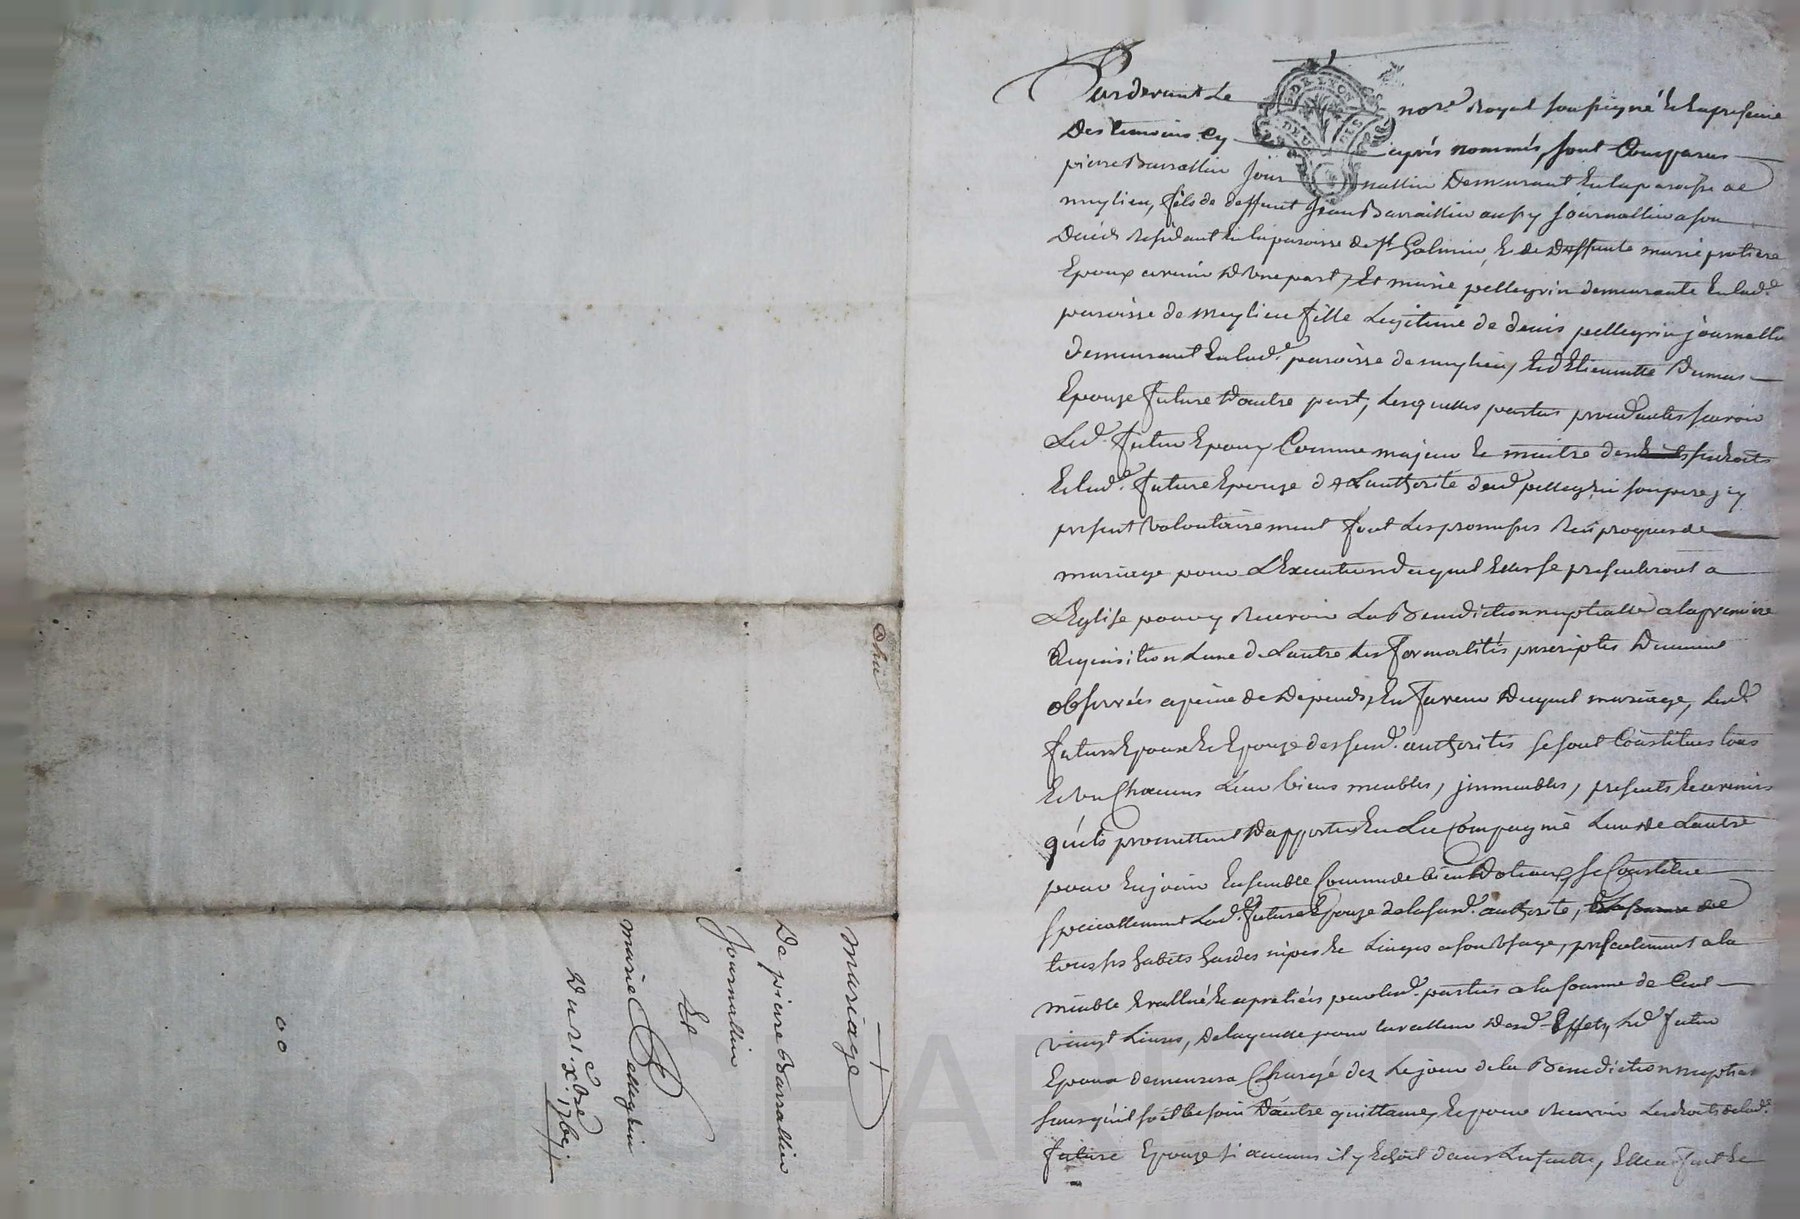 Pardevant Le nore Royal soussigné & En presence
Des temoins cy après nommés, sont Comparus
pierre Barrallin Jour nallier Demeurant En la paroisse de
meylieu, fils de deffunt Jean Barraillin aussy Journallier a son
Décès Residant En la paroisse de St Galmier, & de Deffunte marie protiere
Epoux avenir D'Une part, Et marie pellegrin demeurante En lade
paroisse de meylieu fille Legitime de denis pellegrin journallier
demeurant En lade paroisse de meylieu, & d'Etiennette Dumas
Epouze future D'autre part, Lesquelles parties procedantes sçavoir
Led. futur Epoux Comme majeur & maitre de ses droits
Et lade future Epouze de L'authorité dud pellegrin son pere, icy
present Volontairement font Les promesses Reciproques de
mariage pour L'Execution duquel Elles se presenteront a
L'Eglise pour y Recevoir La Benediction nuptialle a la premiere
Requisition L'une de L'autre Les formalités prescriptes
observées a peine de Depends, En faveur Duquel mariage, Lesd
futurs Epoux & Epouze desusd. authorités se sont Constitués tous
Et Un Chacuns Leur biens meubles, jmmeubles, presents & avenirs
qu'ils promettent D'apporter En La Compagnie L'un de L'autre
pour En jouir Ensemble Comme de bien Dotaux, se Constitue
specialement Lad. future Epouze de la susd. authorité,
tous ses habits hardes nipes & Linges a son Usage,
meuble Evallué & apretiés par lesd. parties a la somme de Cent
vingt Livres, De laquelle pour la valleur Desd. Effets, Led futur
Epoux demeurera Chargé dez Le jour de la Benediction nuptialle
sans qu'il soit besoin D'autre quittance, Et pour Recevoir Les droits de lade
future Epouze si aucuns il y Echoit dans La suitte, Elle a fait &
mariage
De pierre Barrallin
Journallier
Et
marie Pellegrin
Du 21. Xbre 17
CHARLETON